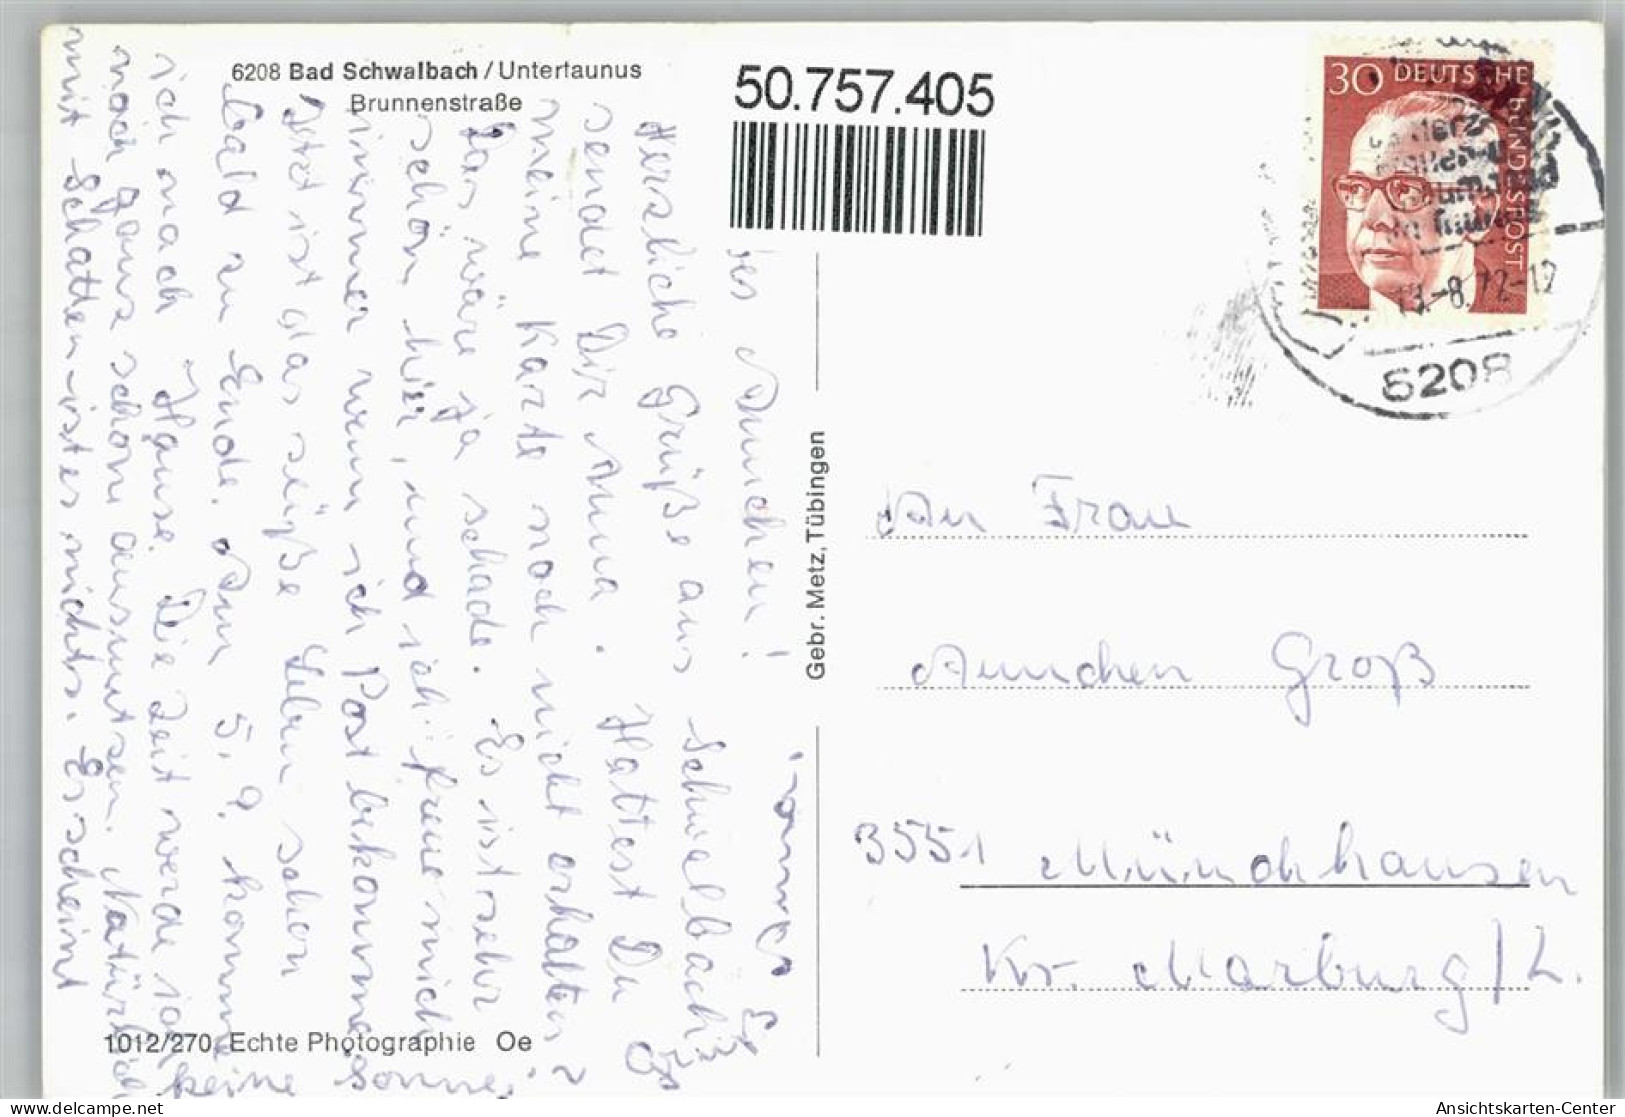 6208 Bad Schwalbach / Untertaunus
Brunnenstraße
50.757.405
30 DEUTSCHE BUNDESPOST
-8.72-12
6208
Annchen!
Herzliche Grüße aus Schwalbach
sendet Dir Anna. Hattest Du
meine Karte noch nicht erhalten?
Das wäre ja schade. Es ist sehr
schön hier, und ich freue mich
immer wenn ich Post bekomme.
Jetzt ist das süße Leben schon
bald zu Ende. Am 5.9. komme
ich nach Hause. Die Zeit werde ich
noch ganz schön ausnutzen. Natürlich
mit Schatten ist es nichts. Es scheint
keine Sonne.
Gebr. Metz, Tübingen
An Frau
Annchen Groß
3551 Münchhausen
Kr. Marburg/L.
1012/270 Echte Photographie Oe
www.delcampe.net
Ansichtskarten-Center